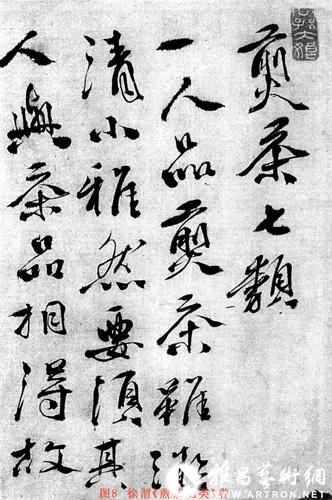 煎茶七類
一人品煎茶雖微
清小雅然要須其
人與茶品相得故
图8 徐渭《煎茶七类》
雅昌藝術網
WWW.ARTRON.NET